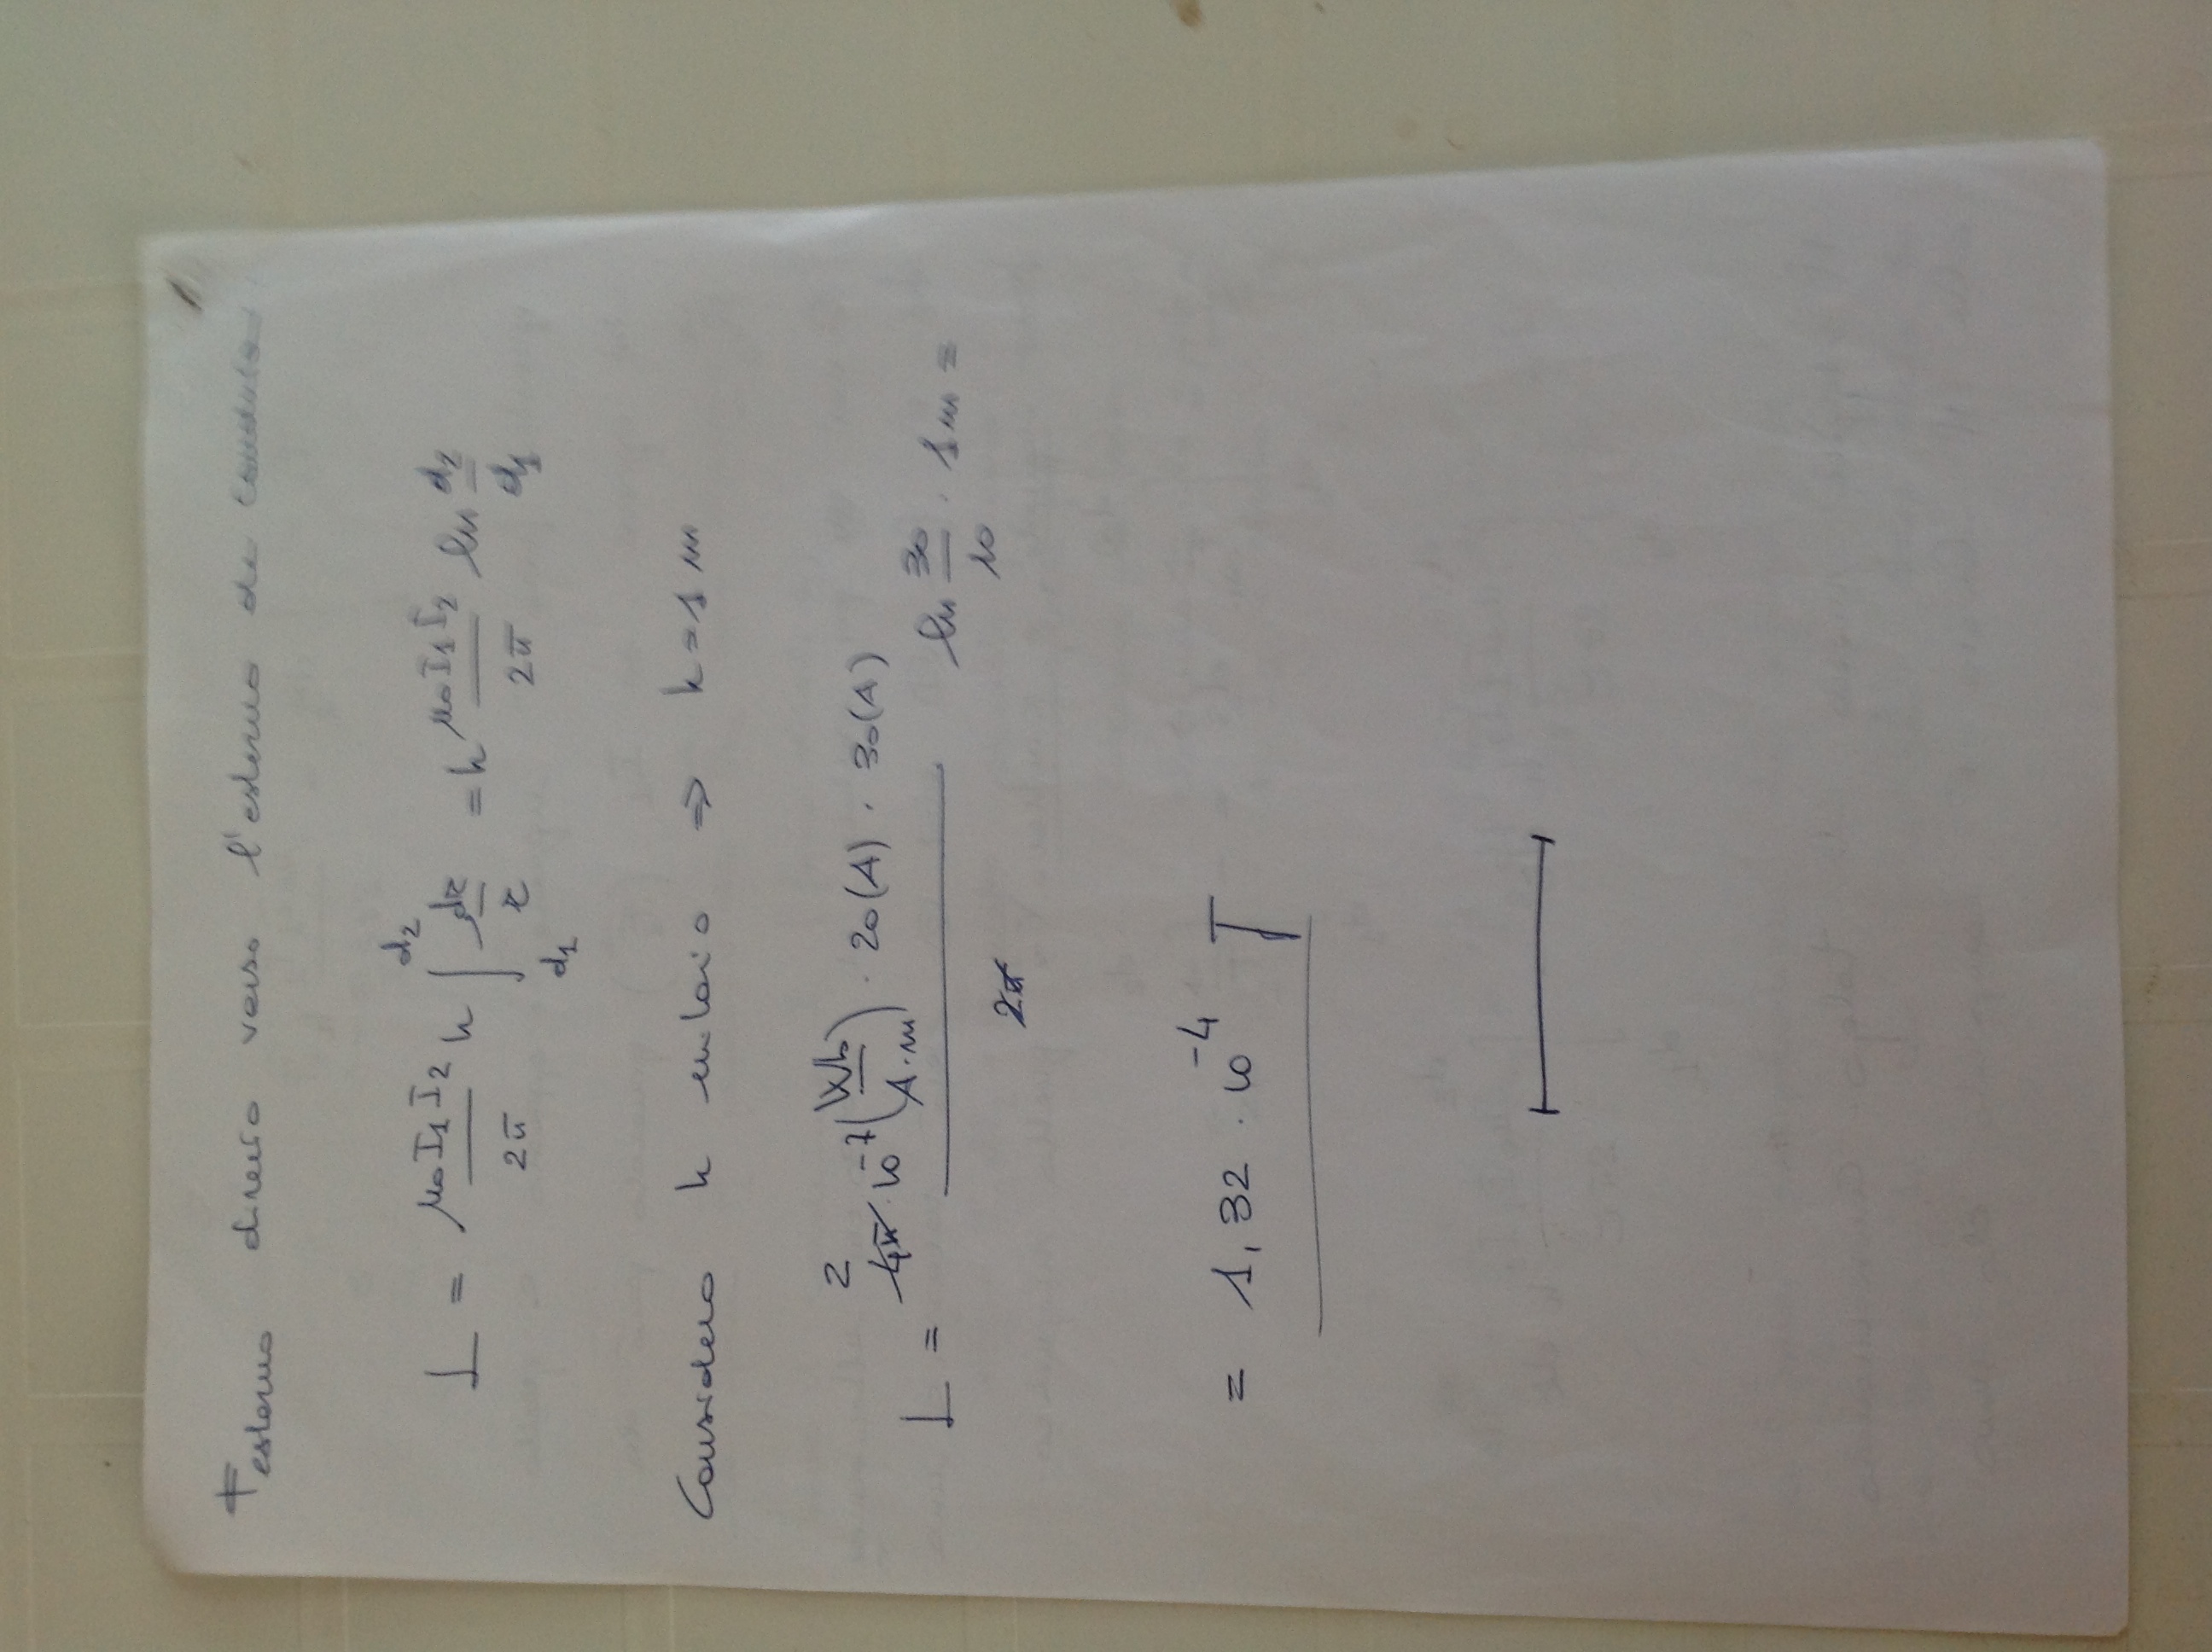 F esterno diretto verso l'esterno dei conduttori
L = μ₀I₁I₂/2π h ∫_{d₁}^{d₂} dr/r = h μ₀I₁I₂/2π ln d₂/d₁
Considero h unitario ⇒ h = 1 m
L = 2 4π · 10⁻⁷ (Wb/A·m) · 20(A) · 30(A) / 2π ln 30/10 · 1m =
= 1,32 · 10⁻⁴ J